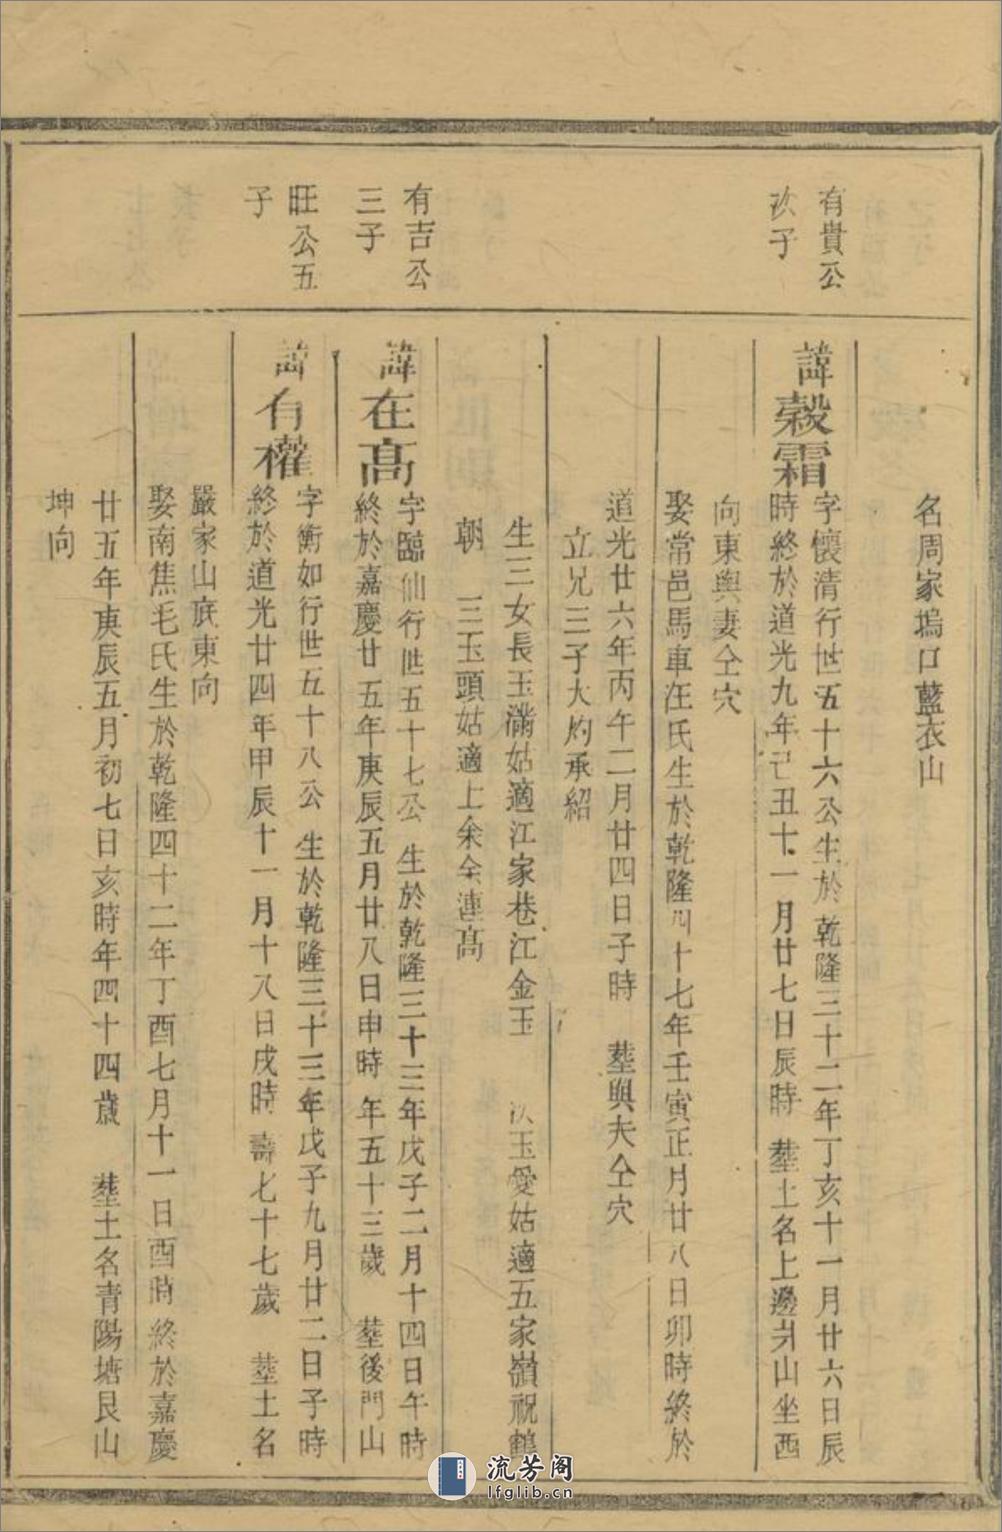 名周家塢口藍衣山
有貴公
次子
諱穀霜
字懷清行世五十六公生於乾隆三十二年丁亥十一月廿六日辰
時終於道光九年己丑十一月廿七日辰時 塟土名上邊井山坐西
向東與妻仝穴
娶常邑馬車汪氏生於乾隆四十七年壬寅正月廿八日卯時終於
道光廿六年丙午二月廿四日子時 塟與夫仝穴
立兄三子大灼承紹
生三女長玉滿姑適江家巷江金玉 次玉愛姑適五家嶺祝鶴
朝 三玉頭姑適上余余連高
有吉公
三子
諱在高
字臨仙行世五十七公 生於乾隆三十三年戊子二月十四日午時
終於嘉慶廿五年庚辰五月廿八日申時 年五十三歲 塟後門山
旺公五
子
諱有權
字衡如行世五十八公 生於乾隆三十三年戊子九月廿二日子時
終於道光廿四年甲辰十一月十八日戌時 壽七十七歲 塟土名
嚴家山底東向
娶南焦毛氏生於乾隆四十二年丁酉七月十一日酉時 終於嘉慶
廿五年庚辰五月初七日亥時年四十四歲 塟土名青陽塘艮山
坤向
流芳阁
lfglib.cn